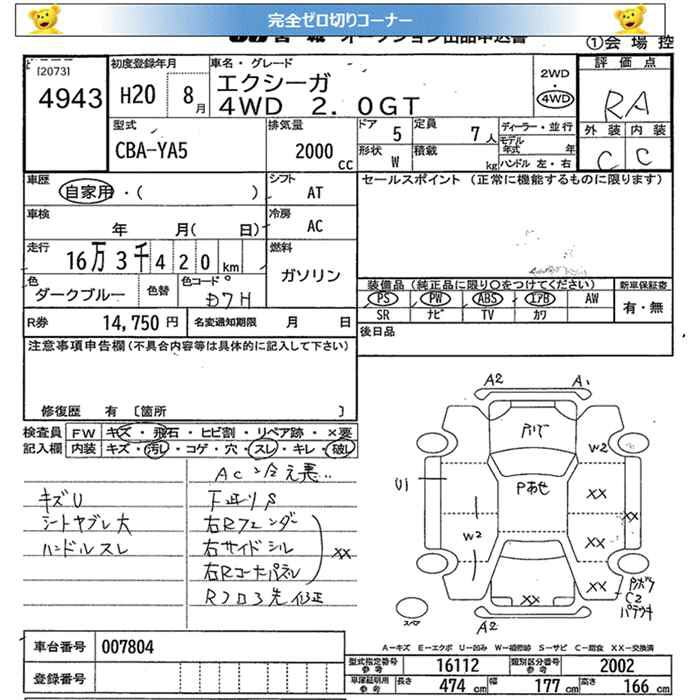 完全ゼロ切りコーナー
オークション出品申込書
①会 場 控
[2073]
4943
初度登録年月
H20 8月
車名・グレード
エクシーガ
4WD 2.0GT
2WD
・
4WD
評 価 点
RA
外 装 内 装
C C
型式
CBA-YA5
排気量
2000 CC
ドア 5
定員 7 人
形状 W
積載 kg
ディーラー・並行
モデル年式 年
ハンドル 左・右
車歴
自家用・( )
シフト AT
セールスポイント (正常に機能するものに限ります)
車検 年 月( 日)
冷房 AC
走行
16万3千420km
燃料
ガソリン
色
ダークブルー
色替
色コード
D7H
装備品(純正品に限り○をつけてください)
PS PW ABS エアB AW
SR ナビ TV カワ
新車保証書
有・無
R券 14,750 円
名変通知期限 月 日
後日品
注意事項申告欄(不具合内容等は具体的に記入して下さい)
修復歴 有 〔箇所 〕
検査員 FW キズ・飛石・ヒビ割・リペア跡・×要
記入欄 内装 キズ・汚レ・コゲ・穴・スレ・キレ・破レ
AC冷え悪..
キズU
シートヤブレ大
ハンドルスレ
下廻りS
右Rフェンダー
右サイドシル
右Rコーナーパネル
XX
Rフロア先修正
A2 A1
W2
U1
Pあせ
XX
XX
W2
XX
XX
C2
A2
A-キズ E-エクボ U-凹み W-補修跡 S-サビ C-腐食 XX-交換済
車台番号 007804
登録番号
型式指定番号 16112
類別区分番号 2002
車庫証明用参考
長さ 474 cm
幅 177 cm
高さ 166 cm